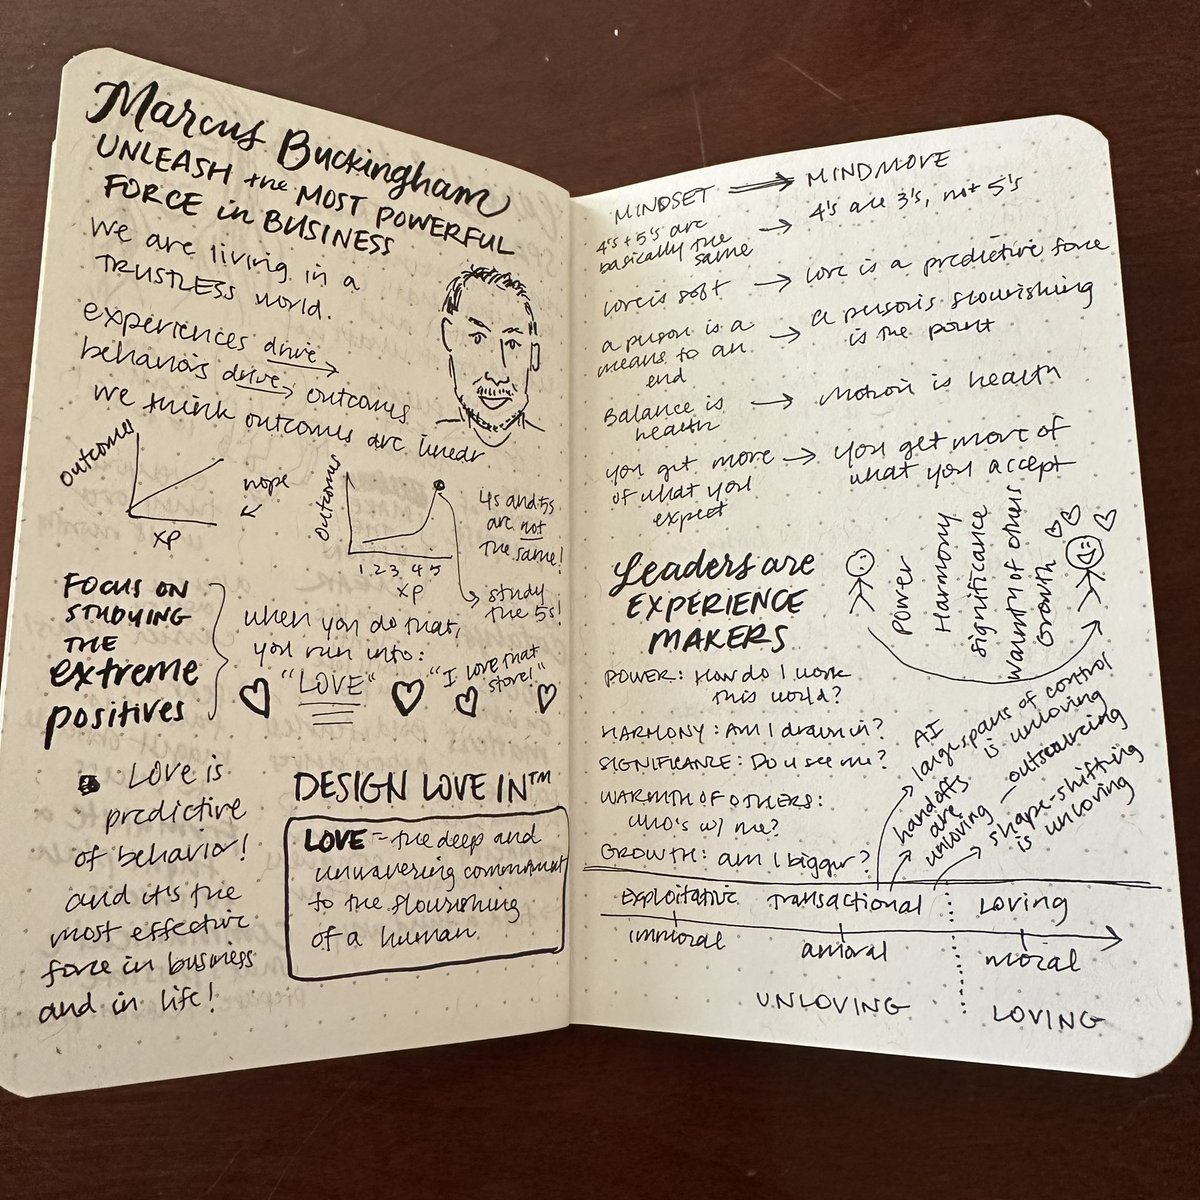 Marcus Buckingham
UNLEASH the MOST POWERFUL
FORCE in BUSINESS
we are living in a
TRUSTLESS world.
experiences drive
behaviors drive outcomes
we think outcomes are linear
outcomes
XP
nope
outcomes
1 2 3 4 5
XP
4s and 5s
are not
the same!
study
the 5s!
FOCUS ON
STUDYING
THE
extreme
positives
when you do that,
you run into:
"LOVE"
"I love that
store!"
LOVE is
predictive
of behavior!
and it's the
most effective
force in business
and in life!
DESIGN LOVE IN™
LOVE = the deep and
unwavering commitment
to the flourishing
of a human
MINDSET → MINDMOVE
4's + 5's are
basically the
same → 4's are 3's, not 5's
love is soft → love is a predictive force
a person is a
means to an
end → a person's flourishing
is the point
Balance is
health → motion is health
you get more
of what you
expect → you get more of
what you accept
Leaders are
EXPERIENCE
MAKERS
Power
Harmony
significance
warmth of others
Growth
POWER: How do I work
this world?
HARMONY: Am I drawn in?
SIGNIFICANCE: Do u see me?
WARMTH OF OTHERS:
who's w/ me?
GROWTH: am I bigger?
AI
large spans of control
is unloving
handoffs
are
unloving
— outsourcing
shape-shifting
is unloving
Exploitative Transactional Loving
immoral amoral moral
UNLOVING LOVING